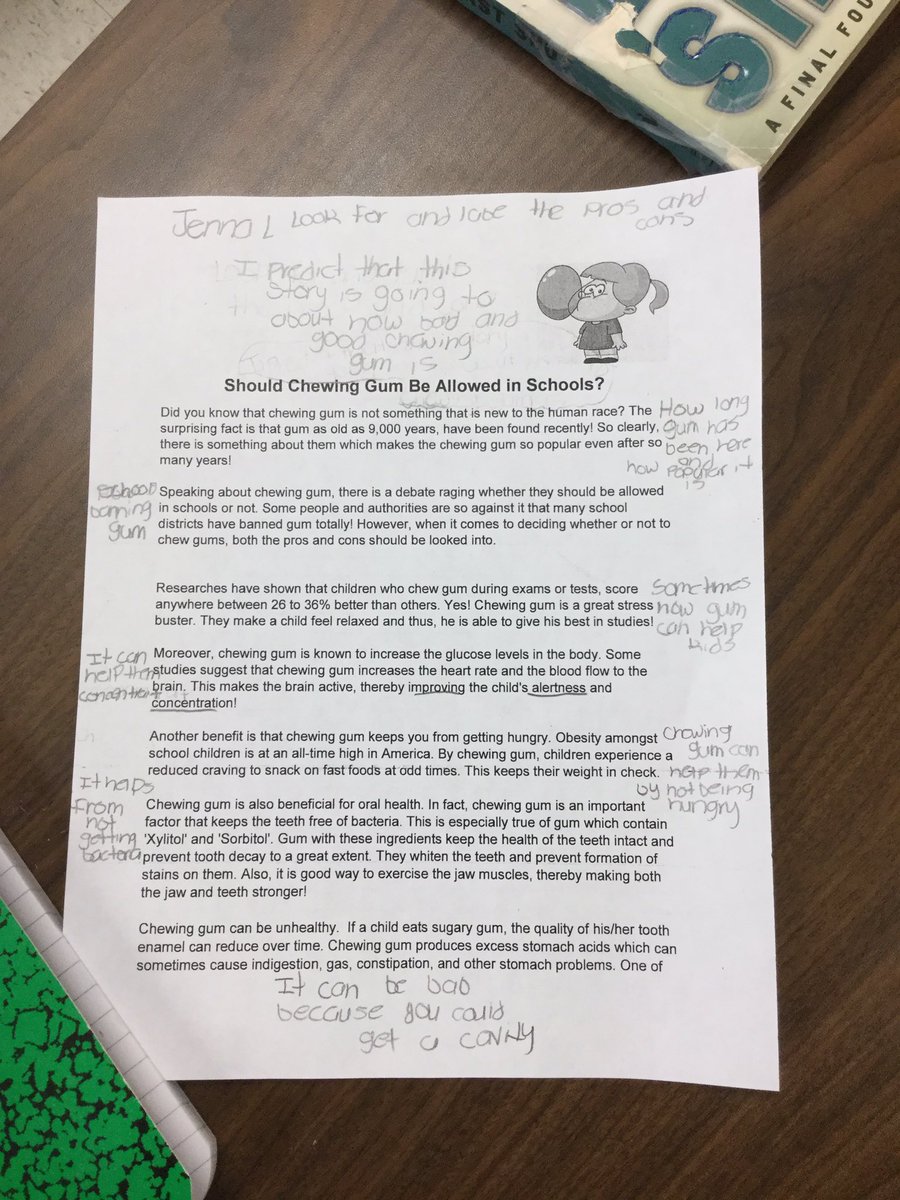 A FINAL FOU
Jenna L Look For and labe the Pros and
cons
I predict that this
Story is going to
about how bad and
good chewing
gum is
Should Chewing Gum Be Allowed in Schools?
Did you know that chewing gum is not something that is new to the human race? The
surprising fact is that gum as old as 9,000 years, have been found recently! So clearly,
there is something about them which makes the chewing gum so popular even after so
many years!
How long
gum has
been here
and
how popular it
is
School
banning
gum
Speaking about chewing gum, there is a debate raging whether they should be allowed
in schools or not. Some people and authorities are so against it that many school
districts have banned gum totally! However, when it comes to deciding whether or not to
chew gums, both the pros and cons should be looked into.
Researches have shown that children who chew gum during exams or tests, score
anywhere between 26 to 36% better than others. Yes! Chewing gum is a great stress
buster. They make a child feel relaxed and thus, he is able to give his best in studies!
Sometimes
how gum
can help
kids
It can
help them
Moreover, chewing gum is known to increase the glucose levels in the body. Some
studies suggest that chewing gum increases the heart rate and the blood flow to the
brain. This makes the brain active, thereby improving the child's alertness and
concentration!
Another benefit is that chewing gum keeps you from getting hungry. Obesity amongst
school children is at an all-time high in America. By chewing gum, children experience a
reduced craving to snack on fast foods at odd times. This keeps their weight in check.
Chowing
gum can
help them
by not being
hungry
It helps
From
not
getting
bacteria
Chewing gum is also beneficial for oral health. In fact, chewing gum is an important
factor that keeps the teeth free of bacteria. This is especially true of gum which contain
'Xylitol' and 'Sorbitol'. Gum with these ingredients keep the health of the teeth intact and
prevent tooth decay to a great extent. They whiten the teeth and prevent formation of
stains on them. Also, it is good way to exercise the jaw muscles, thereby making both
the jaw and teeth stronger!
Chewing gum can be unhealthy. If a child eats sugary gum, the quality of his/her tooth
enamel can reduce over time. Chewing gum produces excess stomach acids which can
sometimes cause indigestion, gas, constipation, and other stomach problems. One of
It can be bad
because you could
get a cavity